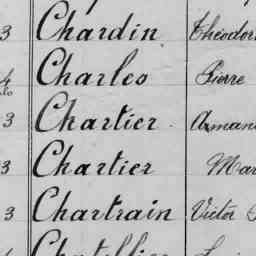 3 Chardin Théodor
4 Charles Pierre
3 Chartier Arman
3 Chartier Mar
3 Chartrain Victor
Chatellier